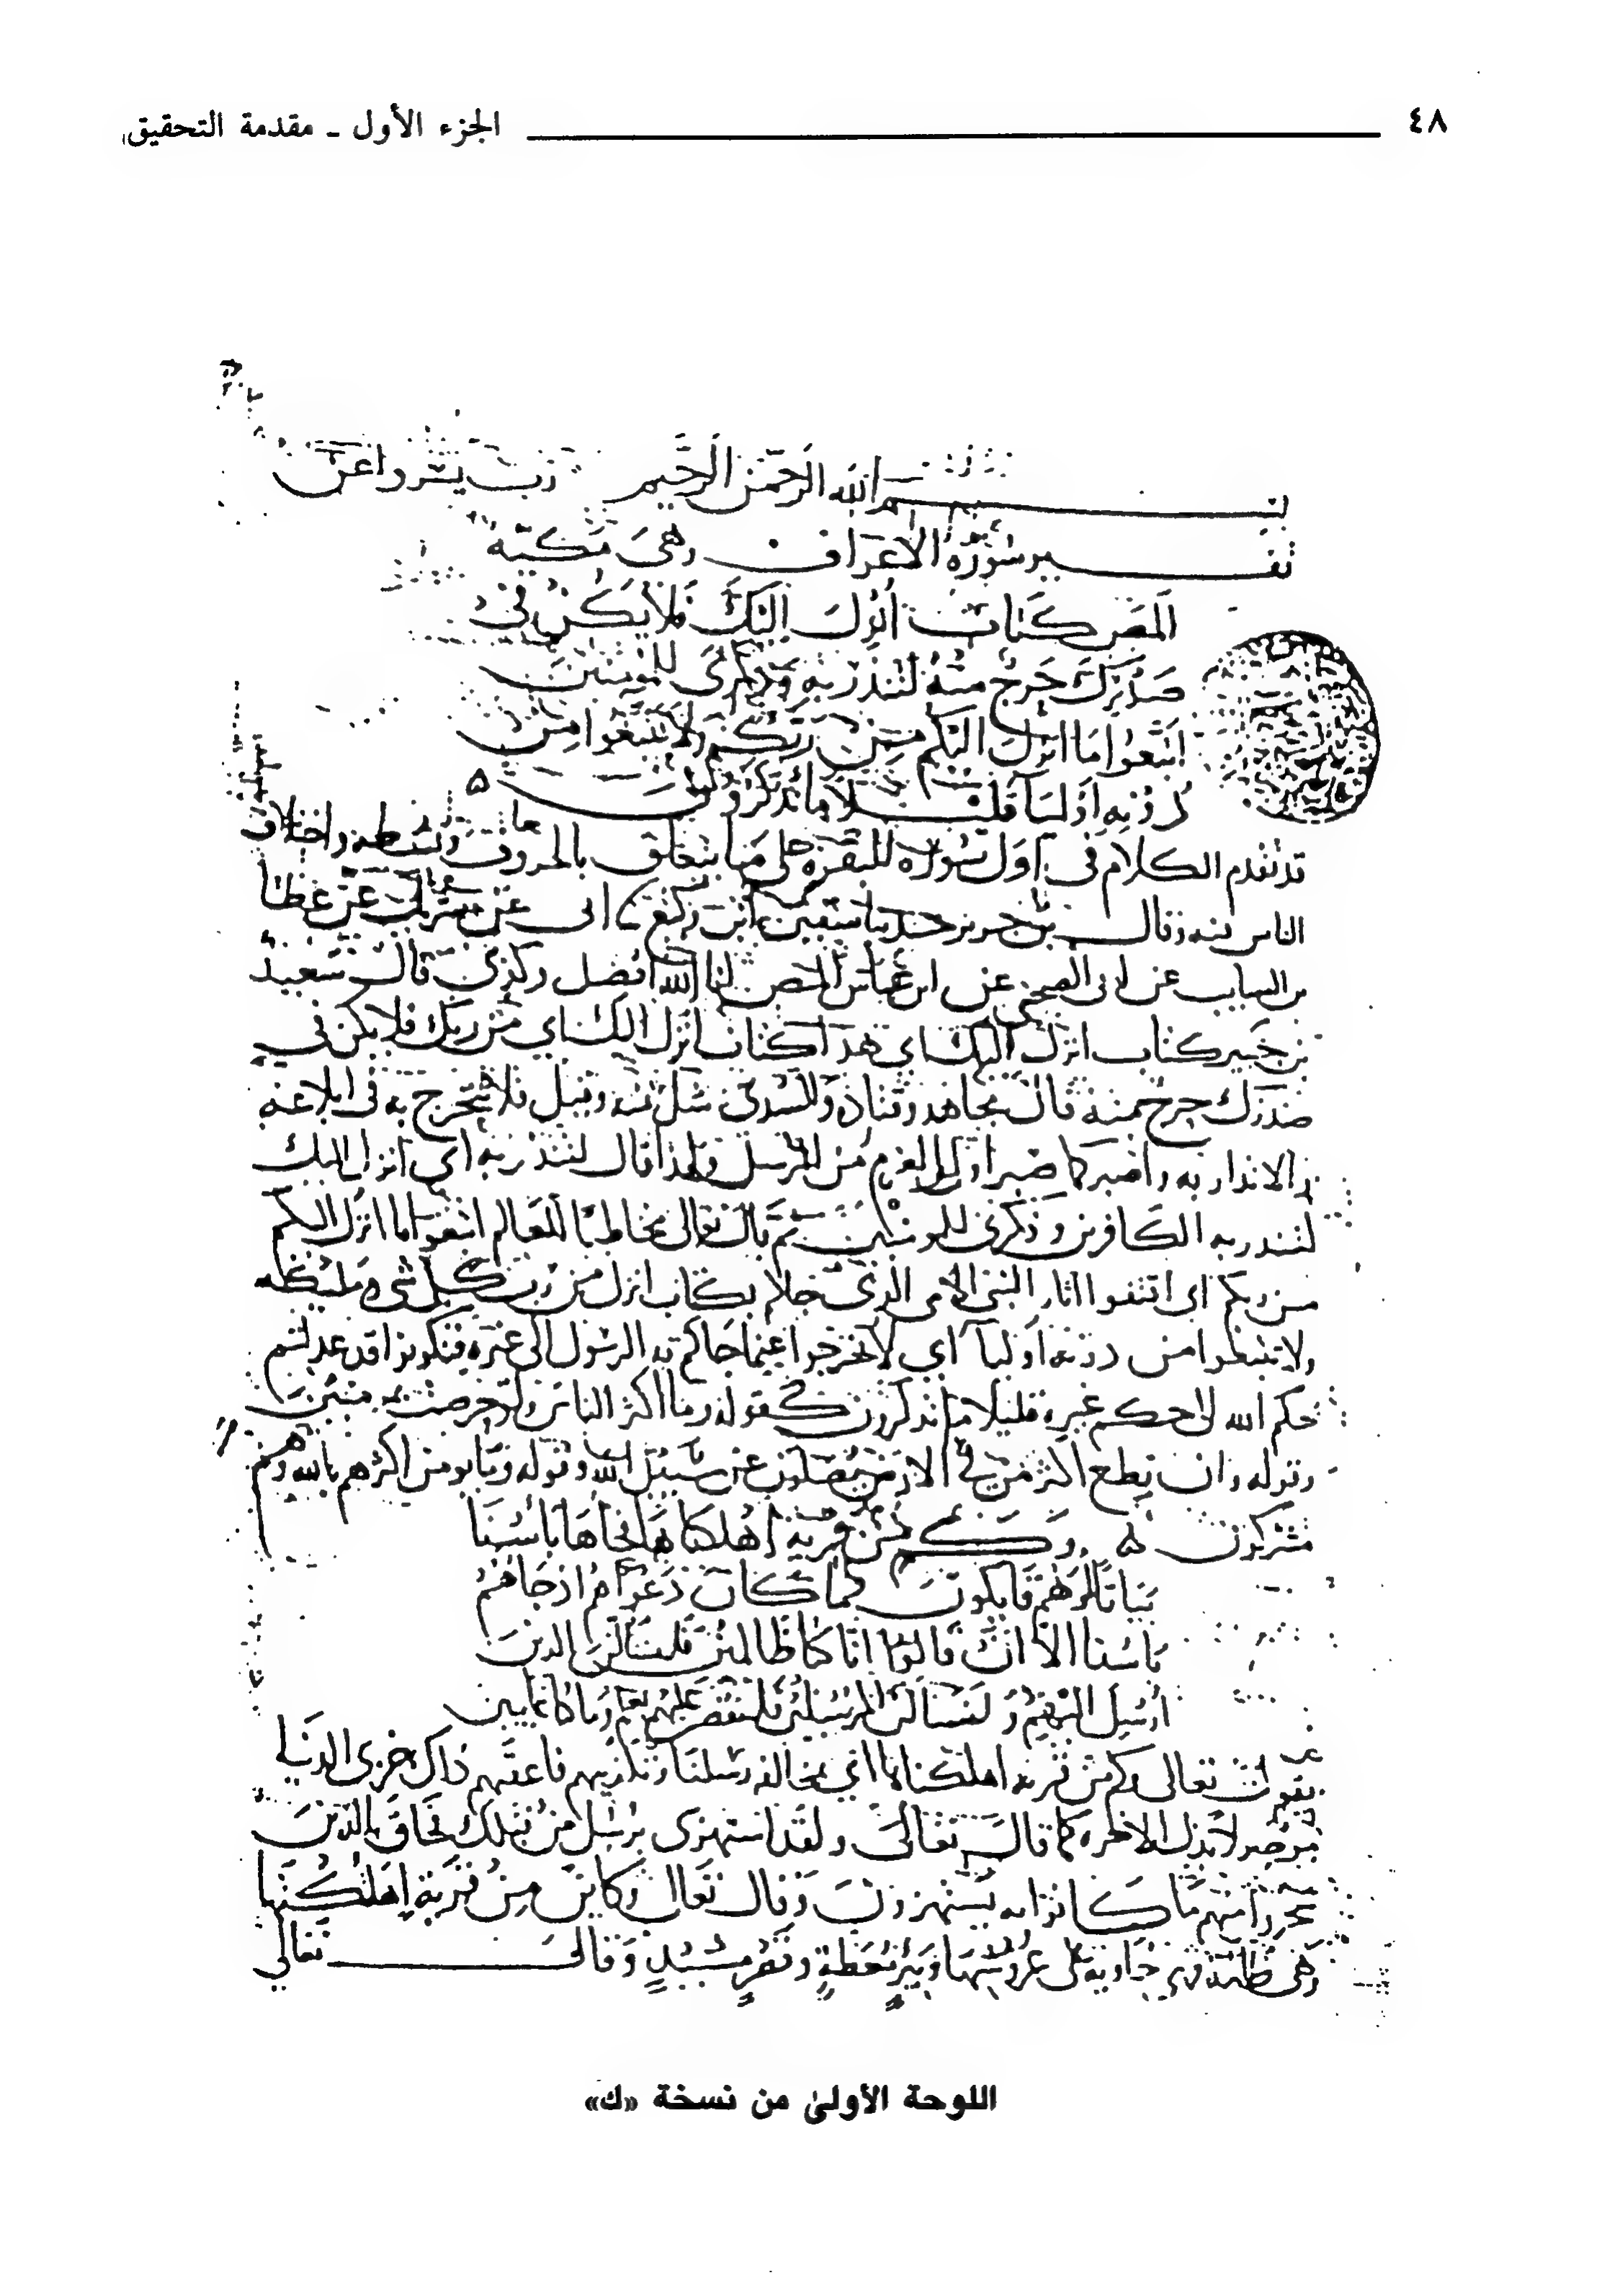 ٤٨ الجزء الأول ـ مقدمة التحقيق
بسم الله الرحمن الرحيم رب يسر واعن
تفسير سورة الاعراف وهي مكية
المص كتاب انزل اليك فلا يكن في
صدرك حرج منه لتنذر به وذكرى للمومنين
اتبعوا ما انزل اليكم من ربكم ولا تتبعوا من
دونه اوليا قليلا ما تذكرون
قد تقدم الكلام في اول سورة البقرة على ما يتعلق بالحروف وبسطه واختلاف
الناس فيه وقال بن جرير حدثنا سفين ابن وكيع ابي عن شريك عن عطا
بن السايب عن ابي الضحى عن ابن عباس المص انا الله افصل وكذي قال سعيد
بن جبير كتاب انزل اليك اي هذا كتاب انزل اليك اي من ربك فلا يكن في
صدرك حرج منه قال مجاهد وقتادة والسدي شك منه وقيل فلا تتحرج به في ابلاغه
والانذار به واصبر كما صبر اولوا العزم من الرسل ولهذا قال لتنذر به اي انزل اليك
لتنذر به الكافرين وذكرى للمومنين ثم قال تعالى مخاطبا للعالم اتبعوا ما انزل اليكم
من ربكم اي اقتفوا اثار النبي الامي الذي جاكم بكتاب انزل من رب كل شي ومليكه
ولا تتبعوا من دونه اوليا اي لا تخرجوا عما جاكم به الرسول الى غيره فتكونوا قد عدلتم
حكم الله الى حكم غيره قليلا ما تذكرون كقوله وما اكثر الناس ولو حرصت بمومنين
وقوله وان تطع اكثر من في الارض يضلوك عن سبيل الله وقوله وما يومن اكثرهم بالله وهم
مشركون وكم من قرية اهلكناها فجاها باسنا
بياتا او هم قايلون فما كان دعواهم اذ جاهم
باسنا الا ان قالوا انا كنا ظالمين فلنسالن الذين
ارسل اليهم ولنسالن المرسلين فلنقصن عليهم بعلم وما كنا غايبين
يقول تعالى وكم من قرية اهلكناها اي بمخالفة رسلنا وتكذيبهم فاعقبهم ذلك خزي الدنيا
موصولا بذل الاخرة كما قال تعالى ولقد استهزى برسل من قبلك فحاق بالذين
سخروا منهم ما كانوا به يستهزون وقال تعالى وكاين من قرية اهلكتها
وهي ظالمة فهي خاوية على عروشها وبير معطلة وقصر مشيد وقال تعالى
اللوحة الأولىٰ من نسخة «ك»